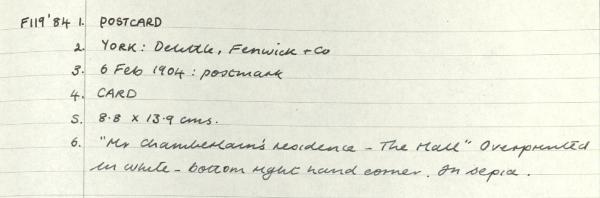 F119'84 1. POSTCARD
2. YORK: Delittle, Fenwick + Co
3. 6 Feb 1904: postmark
4. CARD
5. 8.8 x 13.9 cms.
6. "Mr Chamberlain's residence - The Hall" Overprinted
in white - bottom right hand corner. In sepia.